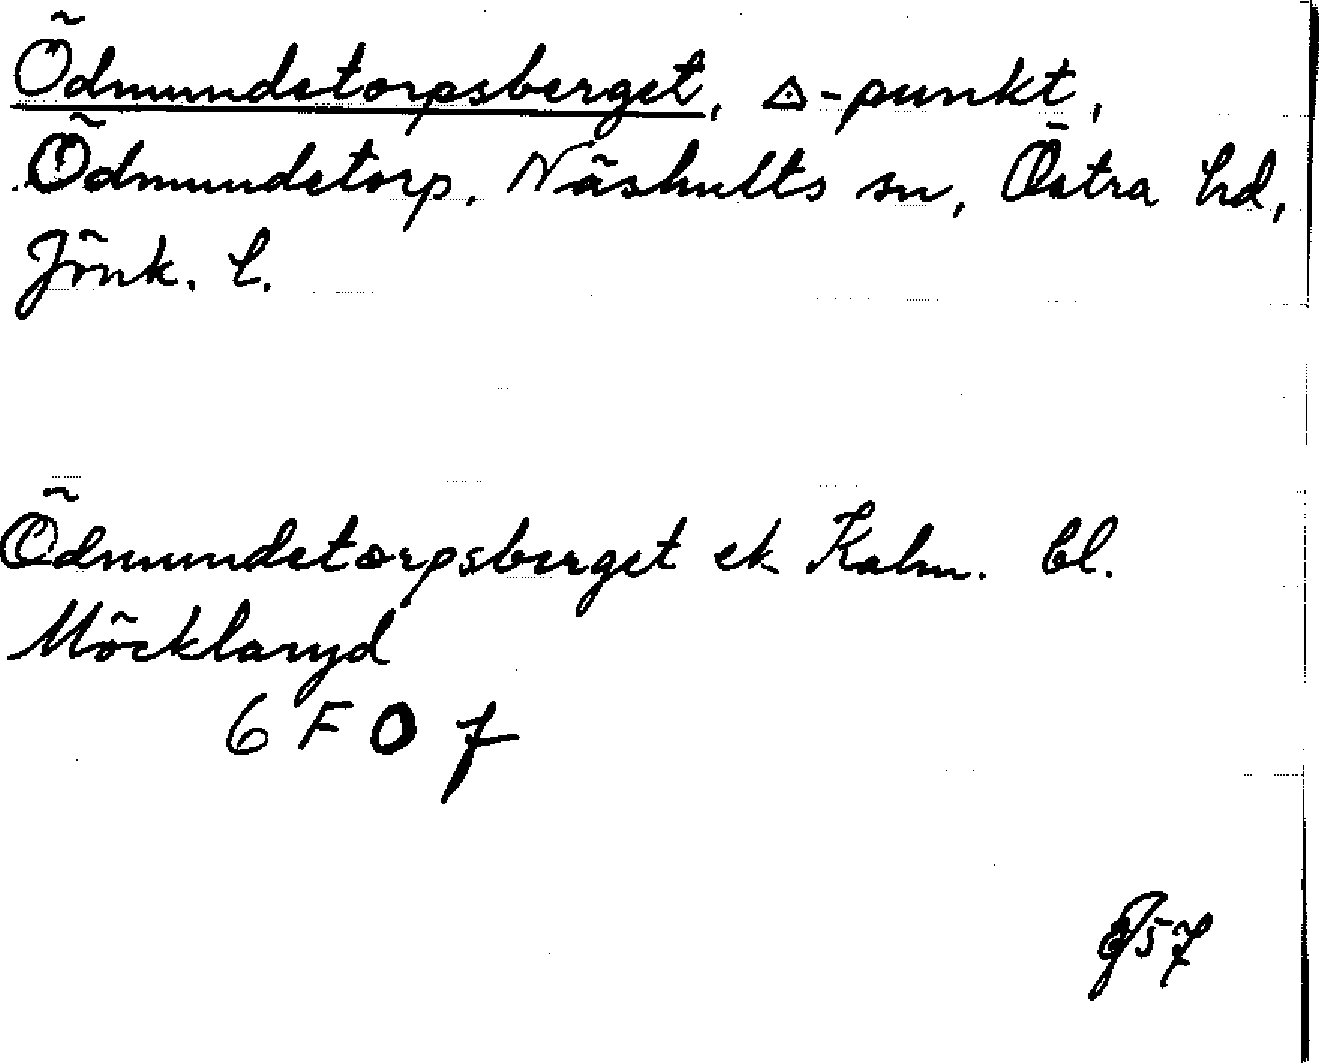 Ödmundetorpsberget, △-punkt,
Ödmundetorp, Näshults sn, Östra hd,
Jönk. l.
Ödmundetorpsberget ek Kalm. bl.
Möcklaryd
6 F 0 f
57